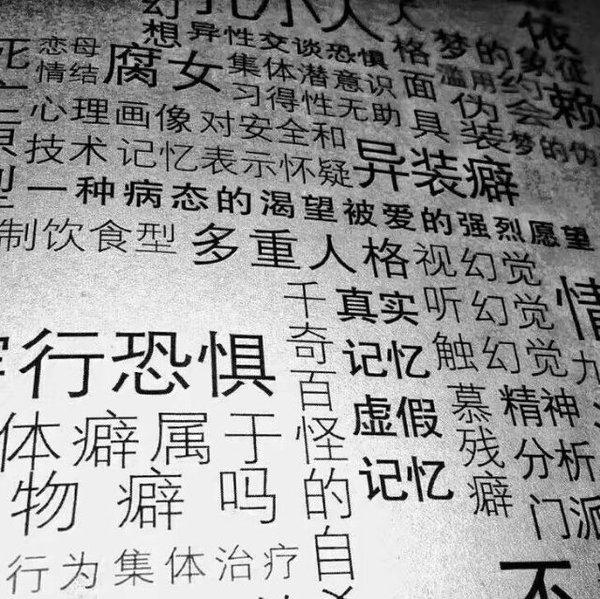 幻 孔 小 人
想 异性交谈恐惧 格 梦的象征
恋母情结 腐女 集体潜意识 面具 滥用约会
依赖
习得性无助 伪装
心理画像 对安全和 梦的伪
技术 记忆表示怀疑 异装癖
型 一种病态的渴望被爱的强烈愿望
制饮食型 多重人格 视幻觉
千奇百怪的自
真实记忆 听幻觉
行恐惧 触幻觉
虚假记忆 慕残癖 精神分析门派
情
九
体癖属于
物癖吗
行为集体治疗
不